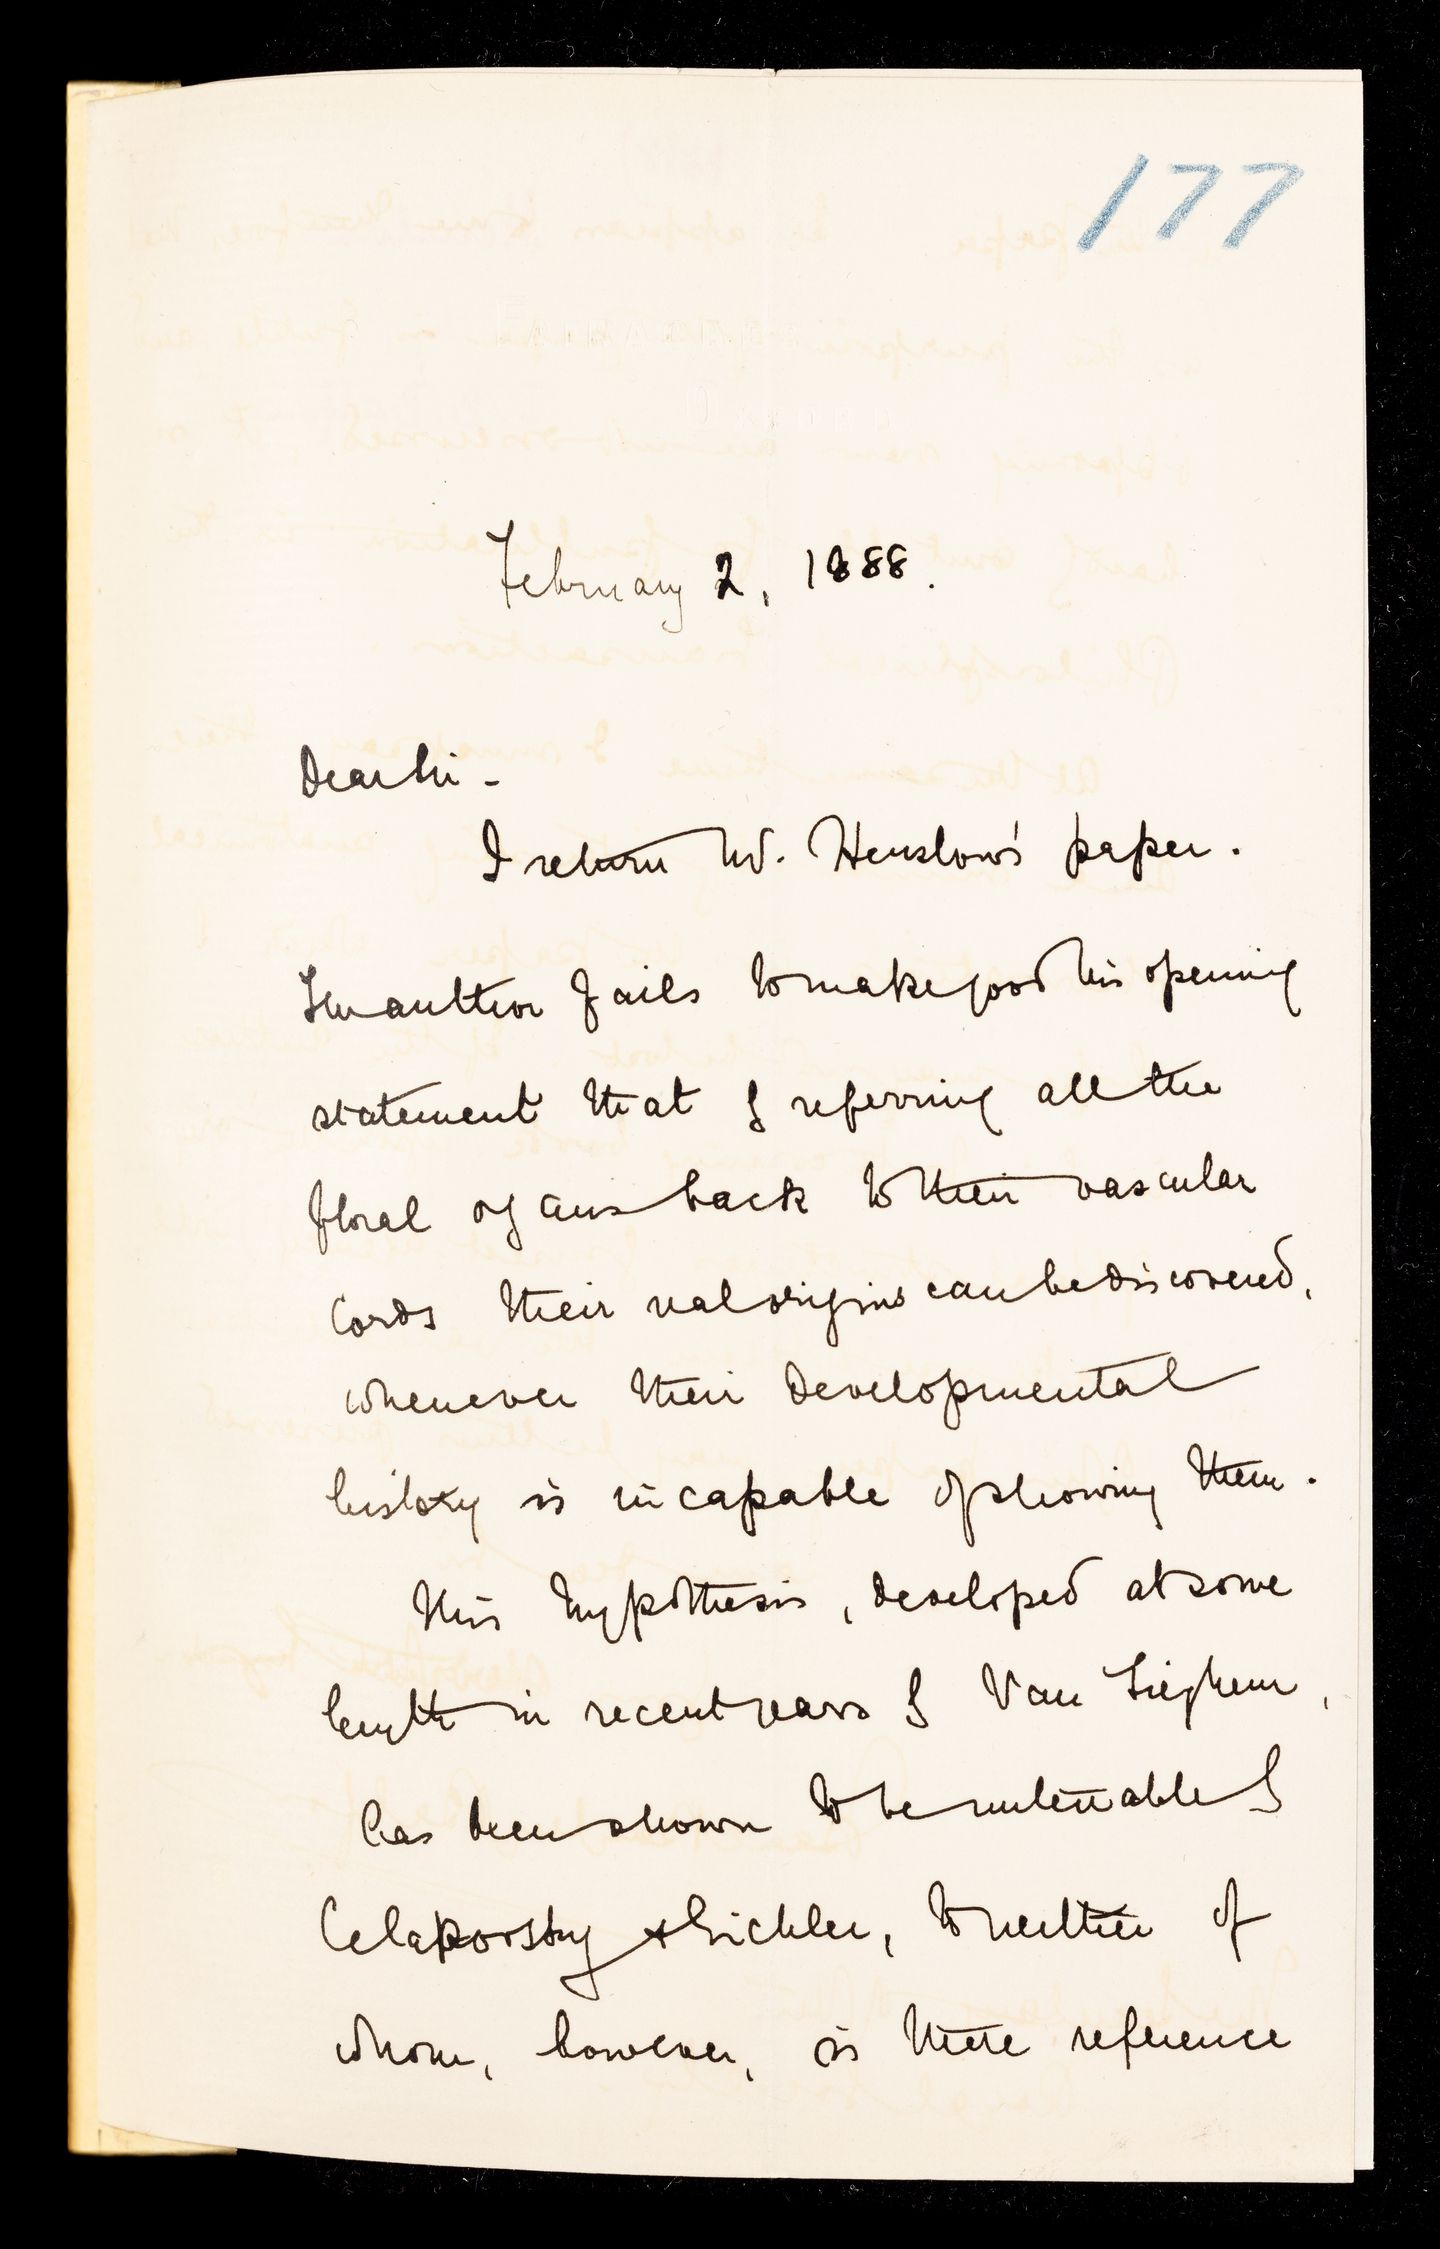 177
FAIRACRES
OXFORD
February 2, 1888.
Dear Sir -
I return Mr. Henslow's paper.
The author fails to make good his opening
statement that by referring all the
floral organs back to their vascular
cords their real origins can be discovered,
whenever their developmental
history is incapable of showing them.
This hypothesis, developed at some
length in recent years by Van Tieghem,
has been shown to be untenable by
Celakovsky & Eichler, to neither of
whom, however, is there reference